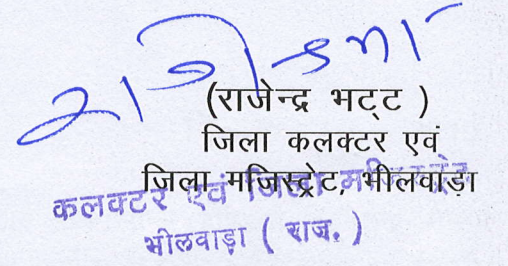 (राजेन्द्र भट्ट )
जिला कलक्टर एवं
जिला मजिस्ट्रेट, भीलवाड़ा
कलक्टर एवं जिला मजिस्ट्रेट
भीलवाड़ा ( राज. )